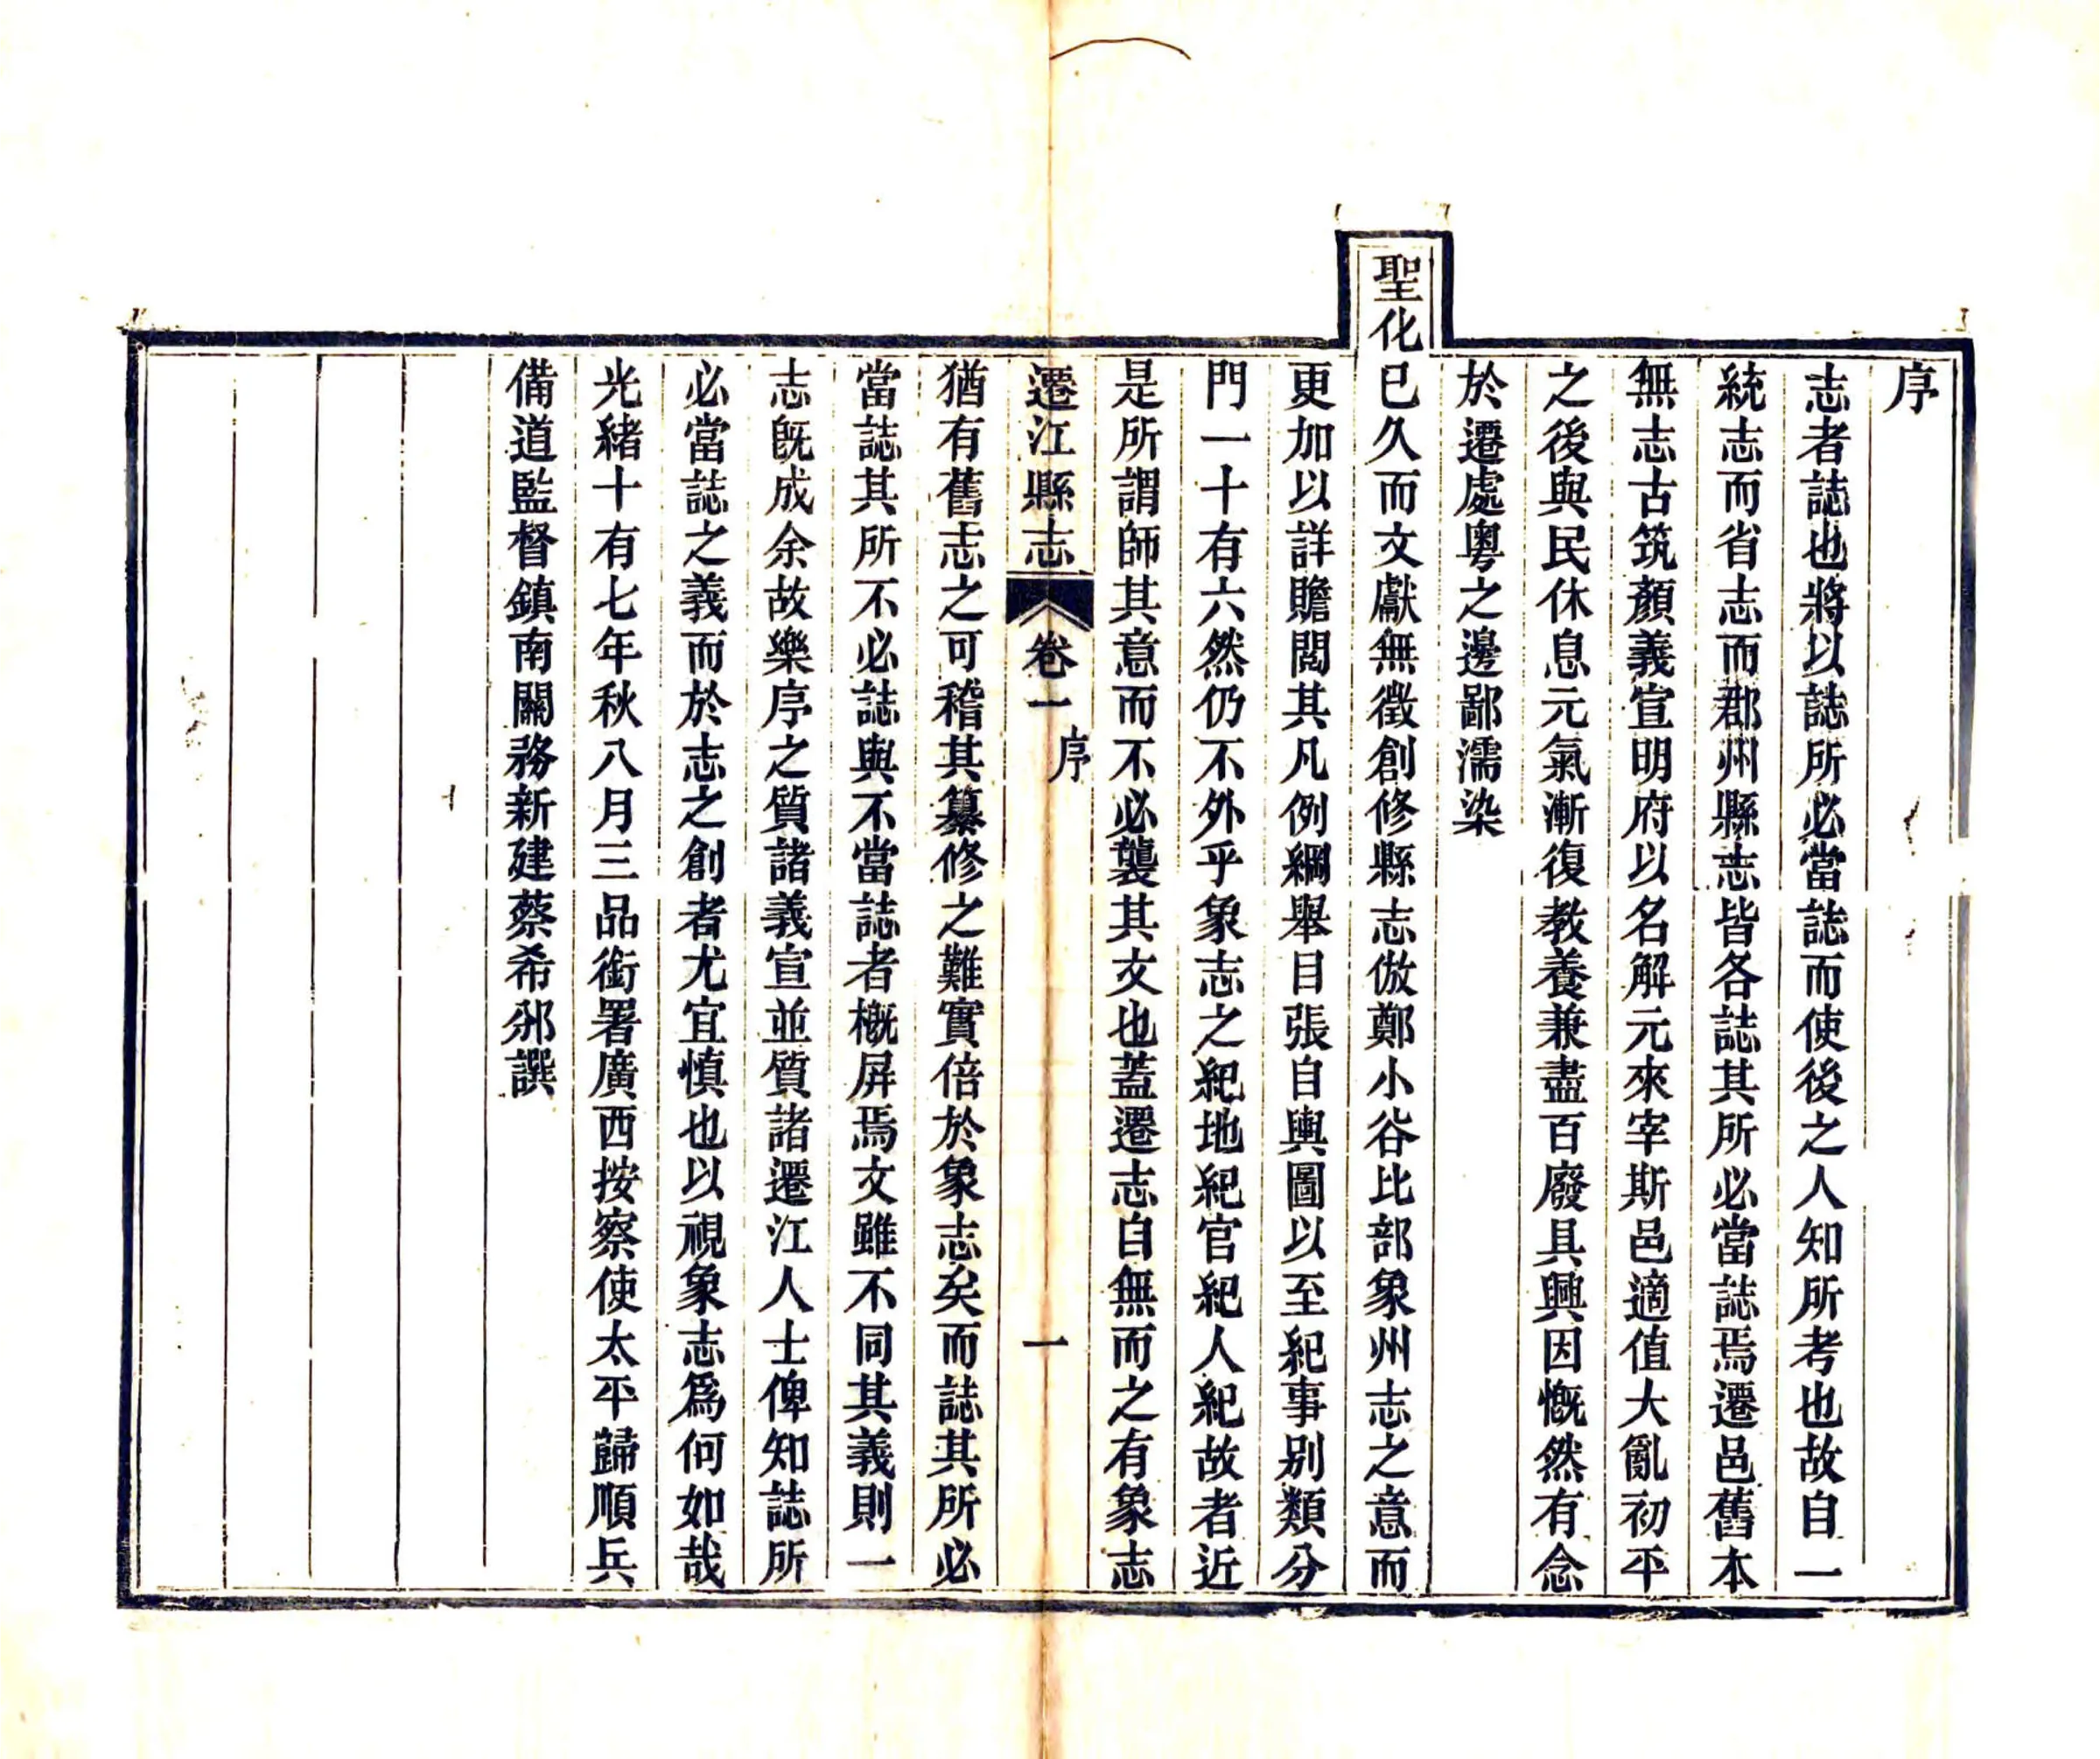 序
志者誌也將以誌所必當誌而使後之人知所考也故自一
統志而省志而郡州縣志皆各誌其所必當誌焉遷邑舊本
無志古筑顏義宣明府以名解元來宰斯邑適值大亂初平
之後與民休息元氣漸復教養兼盡百廢具興因慨然有念
於遷處粵之邊鄙濡染
聖化已久而文獻無徵創修縣志倣鄭小谷比部象州志之意而
更加以詳贍閱其凡例綱舉目張自輿圖以至紀事别類分
門一十有六然仍不外乎象志之紀地紀官紀人紀故者近
是所謂師其意而不必襲其文也蓋遷志自無而之有象志
遷江縣志 卷一 序 一
猶有舊志之可稽其纂修之難實倍於象志矣而誌其所必
當誌其所不必誌與不當誌者概屏焉文雖不同其義則一
志旣成余故樂序之質諸義宣並質諸遷江人士俾知誌所
必當誌之義而於志之創者尤宜慎也以視象志爲何如哉
光緒十有七年秋八月三品銜署廣西按察使太平歸順兵
備道監督鎮南關務新建蔡希邠譔